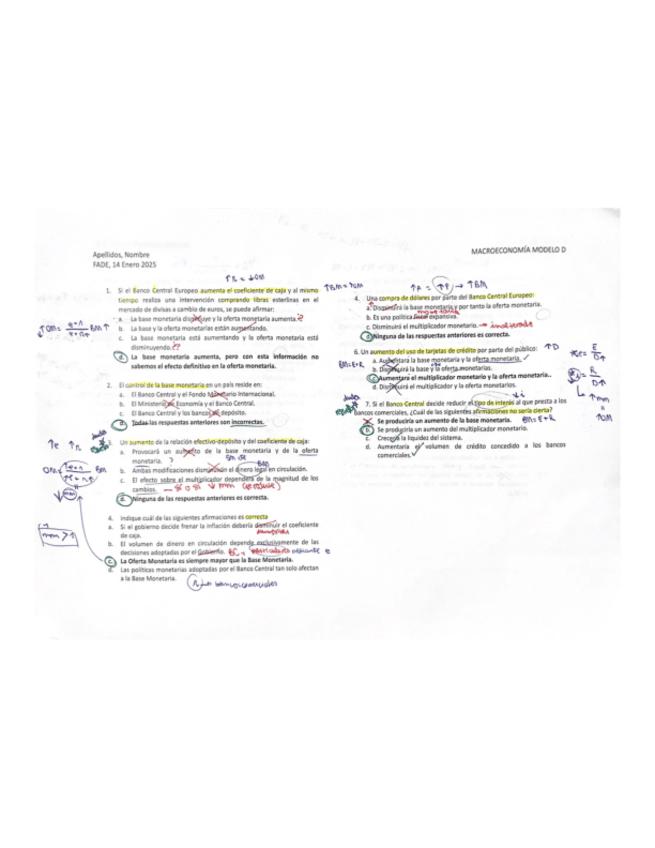 Apellidos, Nombre
FADE, 14 Enero 2025
MACROECONOMÍA MODELO D
↑r = ↓OM
1. Si el Banco Central Europeo aumenta el coeficiente de caja y al mismo
tiempo realiza una intervención comprando libras esterlinas en el
mercado de divisas a cambio de euros, se puede afirmar:
a. La base monetaria disminuye y la oferta monetaria aumenta.
b. La base y la oferta monetarias están aumentando.
c. La base monetaria está aumentando y la oferta monetaria está
disminuyendo.??
d. La base monetaria aumenta, pero con esta información no
sabemos el efecto definitivo en la oferta monetaria.
2. El control de la base monetaria en un país reside en:
a. El Banco Central y el Fondo Monetario Internacional.
b. El Ministerio de Economía y el Banco Central.
c. El Banco Central y los bancos de depósito.
d. Todas las respuestas anteriores son incorrectas.
↑e ↑r
3. Un aumento de la relación efectivo-depósito y del coeficiente de caja:
a. Provocará un aumento de la base monetaria y de la oferta
monetaria. ?
b. Ambas modificaciones disminuyen el dinero legal en circulación.
BM
c. El efecto sobre el multiplicador dependerá de la magnitud de los
cambios.
↓ mm
d. Ninguna de las respuestas anteriores es correcta.
4. Indique cuál de las siguientes afirmaciones es correcta
a. Si el gobierno decide frenar la inflación debería disminuir el coeficiente
de caja.
b. El volumen de dinero en circulación depende exclusivamente de las
decisiones adoptadas por el Gobierno.
c. La Oferta Monetaria es siempre mayor que la Base Monetaria.
d. Las políticas monetarias adoptadas por el Banco Central tan solo afectan
a la Base Monetaria.
bancos comerciales
mm > 1
↑BM = ↑OM
→ ↑BM
4. Una compra de dólares por parte del Banco Central Europeo:
a. Disminuirá la base monetaria y por tanto la oferta monetaria.
monetaria
b. Es una política fiscal expansiva.
c. Disminuirá el multiplicador monetario.
d. Ninguna de las respuestas anteriores es correcta.
6. Un aumento del uso de tarjetas de crédito por parte del público: ↑D
a. Aumentará la base monetaria y la oferta monetaria.
BM=E+R
b. Disminuirá la base y la oferta monetarias.
c. Aumentará el multiplicador monetario y la oferta monetaria..
d. Disminuirá el multiplicador y la oferta monetarios.
↑mm
=
↑OM
↓i
7. Si el Banco Central decide reducir el tipo de interés al que presta a los
bancos comerciales, ¿Cuál de las siguientes afirmaciones no sería cierta?
a. Se produciría un aumento de la base monetaria. BM=E+R
b. Se produciría un aumento del multiplicador monetario.
c. Crecería la liquidez del sistema.
d. Aumentaría el volumen de crédito concedido a los bancos
comerciales.